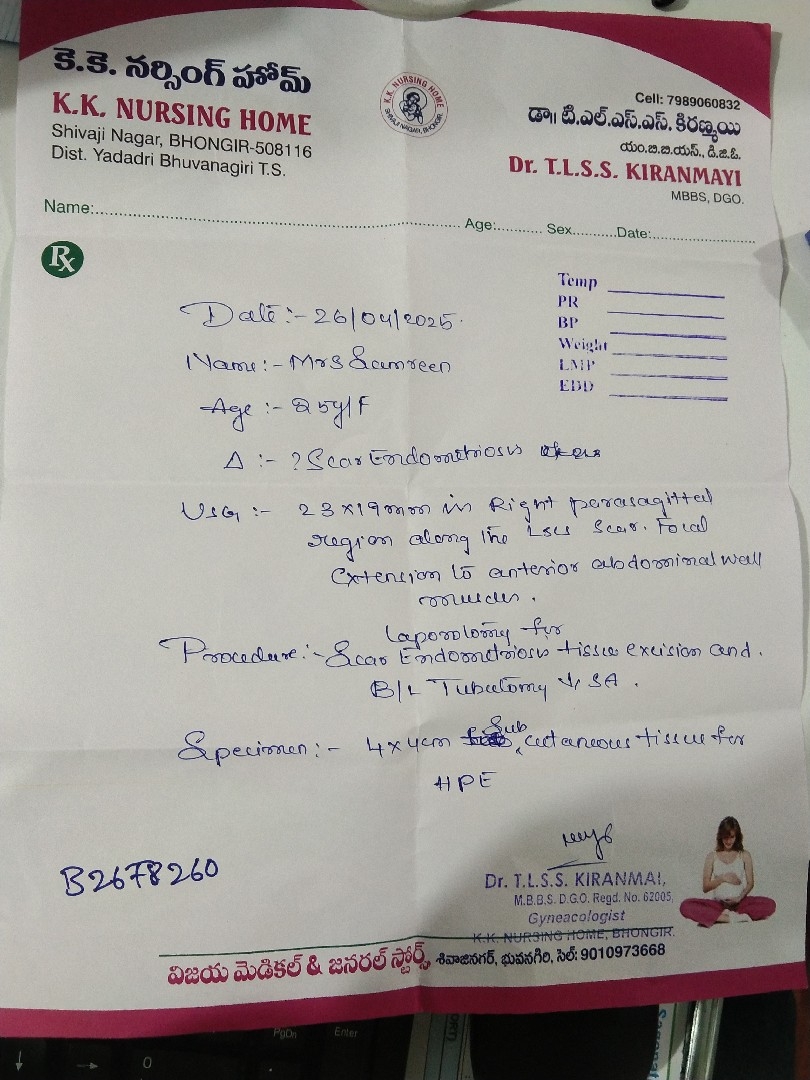 కె.కె. నర్సింగ్ హోమ్
K.K. NURSING HOME
Shivaji Nagar, BHONGIR-508116
Dist. Yadadri Bhuvanagiri T.S.
K.K. NURSING HOME
SHIVAJI NAGAR, BHONGIR
Cell: 7989060832
డా॥ టి.ఎల్.ఎస్.ఎస్. కిరణ్మయి
యం.బి.బి.యస్., డి.జి.ఓ.
Dr. T.L.S.S. KIRANMAYI
MBBS, DGO.
Name:.......... Age:.......... Sex..........Date:..........
Rx
Temp
PR
BP
Weight
LMP
EDD
Date :- 26/04/2025.
Name :- Mrs Samreen
Age :- 25y/F
Δ :- ? Scar Endometriosis
USG :- 23x19mm in Right parasagittal
region along the LSCS Scar. Focal
extension to anterior abdominal wall
muscles.
Laporolomy for
Procedure :- Scar Endometriosis tissue excision and.
B/L Tubectomy SA.
Specimen :- 4x4cm Sub cutaneous tissue for
HPE
B2678260
Dr. T.L.S.S. KIRANMAI,
M.B.B.S. D.G.O. Regd. No. 62005,
Gyneacologist
K.K. NURSING HOME, BHONGIR.
విజయ మెడికల్ & జనరల్ స్టోర్స్ శివాజినగర్, భువనగిరి, సెల్: 9010973668
PgDn
Enter
0